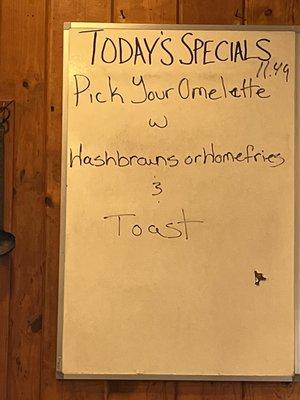 TODAY'S SPECIALS
11.49
Pick Your Omelette
w
Hashbrowns or Homefries
&
Toast